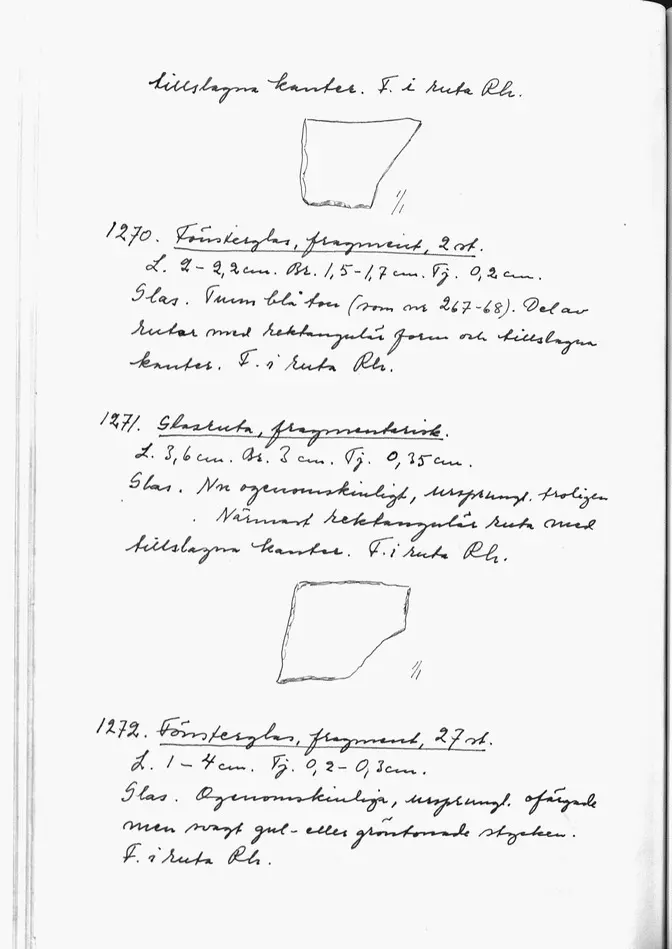 tillslagna kanter. F. i ruta Rh.
1/1
1270. Fönsterglas, fragment, 2 st.
L. 2-2,2 cm. Br. 1,5-1,7 cm. Tj. 0,2 cm.
Glas. Tunn blå ton (som nr 267-68). Del av
rutor med rektangulär form och tillslagna
kanter. F. i ruta Rh.
1271. Glasruta, fragmentarisk.
L. 3,6 cm. Br. 3 cm. Tj. 0,35 cm.
Glas. Nu ogenomskinligt, ursprungl. troligen
. Närmast rektangulär ruta med
tillslagna kanter. F. i ruta Rh.
1/1
1272. Fönsterglas, fragment, 27 st.
L. 1-4 cm. Tj. 0,2-0,3 cm.
Glas. Ogenomskinliga, ursprungl. ofärgade
men svagt gul- eller gröntonade stycken.
F. i ruta Rh.